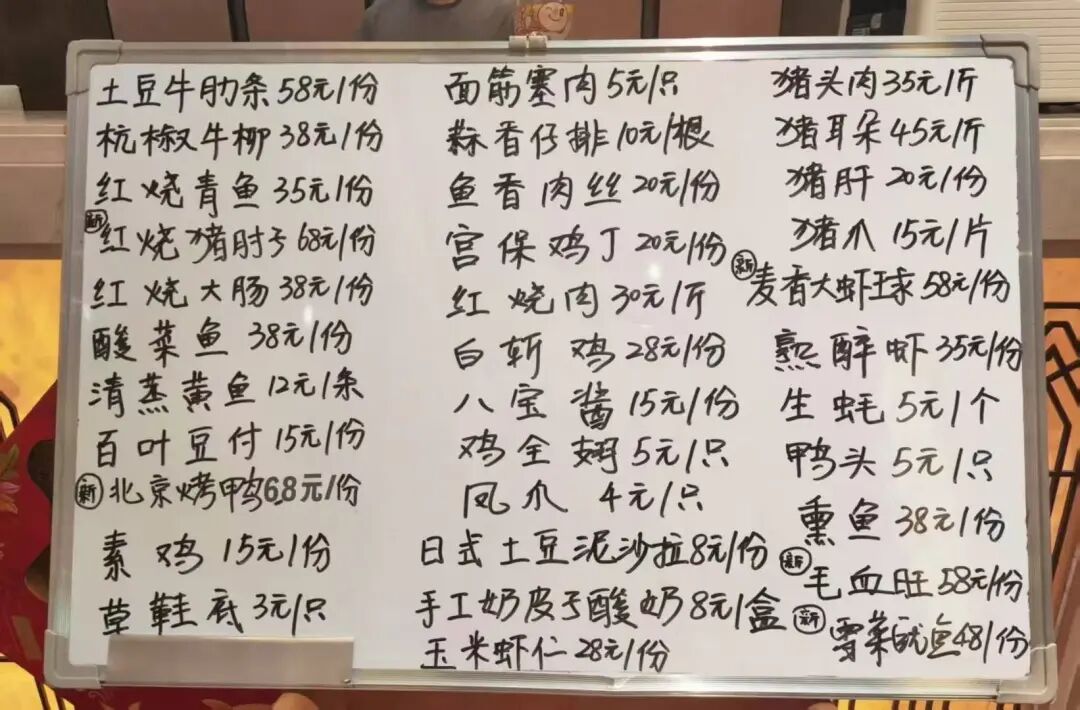 土豆牛肋条58元/份
杭椒牛柳38元/份
红烧青鱼35元/份
新 红烧猪肘子68元/份
红烧大肠38元/份
酸菜鱼 38元/份
清蒸黄鱼12元/条
百叶豆付15元/份
新 北京烤鸭68元/份
素鸡 15元/份
草鞋底3元/只
面筋塞肉5元/只
蒜香仔排10元/根
鱼香肉丝20元/份
宫保鸡丁20元/份
红烧肉30元/斤
白斩鸡28元/份
八宝酱15元/份
鸡全翅5元/只
凤爪 4元/只
日式土豆泥沙拉8元/份
手工奶皮子酸奶8元/盒
玉米虾仁28元/份
猪头肉35元/斤
猪耳朵45元/斤
猪肝20元/份
猪爪15元/片
新 麦香大虾球58元/份
熟醉虾35元/份
生蚝5元/个
鸭头5元/只
熏鱼38元/份
新 毛血旺58元/份
新 雪菜鱿鱼48/份